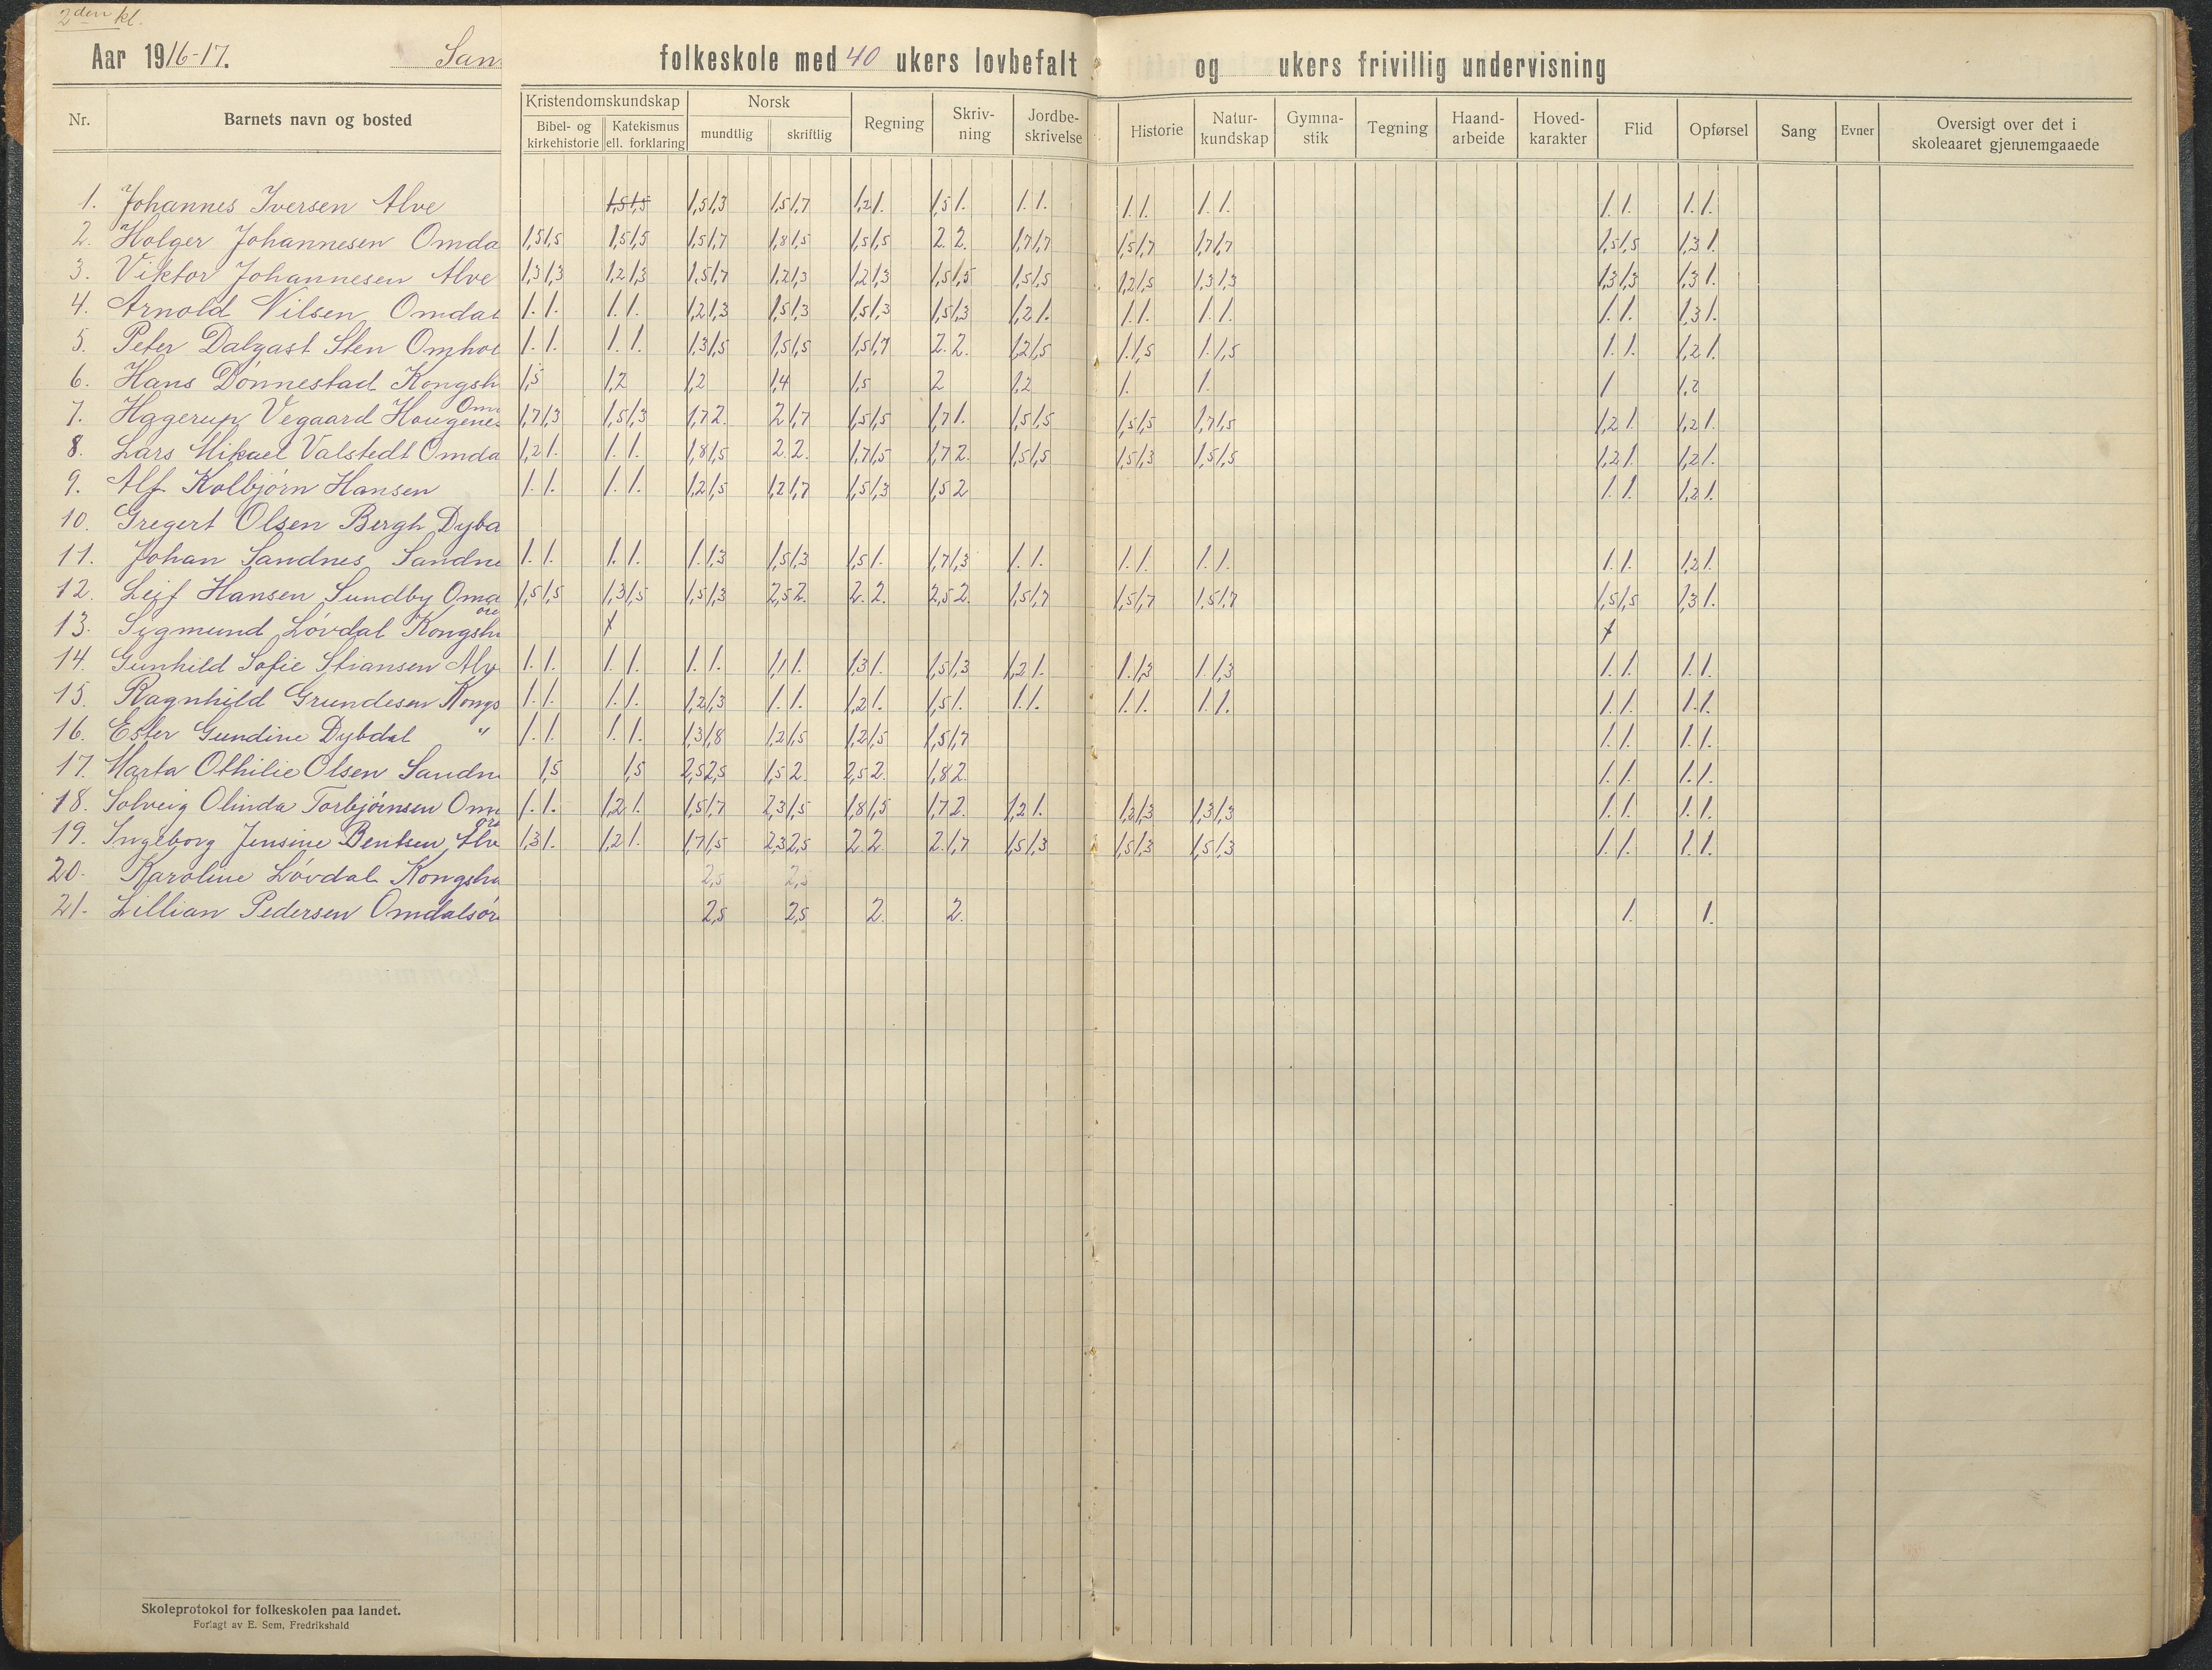 2den kl.
Aar 1916-17. San folkeskole med 40 ukers lovbefalt og ukers frivillig undervisning
Nr. Barnets navn og bosted Kristendomskundskap Bibel- og kirkehistorie Katekismus ell. forklaring Norsk mundtlig skriftlig Regning Skriv-ning Jordbe-skrivelse Historie Natur-kundskap Gymna-stik Tegning Haand-arbeide Hoved-karakter Flid Opførsel Sang Evner Oversigt over det i skoleaaret gjennemgaaede
1. Johannes Iversen Alve 1,5 1,5 1,5 1,3 1,5 1,7 1,2 1. 1,5 1. 1. 1. 1. 1. 1. 1. 1. 1. 1. 1.
2. Holger Johannesen Omda 1,5 1,5 1,5 1,5 1,5 1,7 1,8 1,5 1,5 1,5 2. 2. 1,7 1,7 1,5 1,7 1,7 1,7 1,5 1,5 1,3 1.
3. Viktor Johannesen Alve 1,3 1,3 1,2 1,3 1,5 1,7 1,2 1,3 1,2 1,3 1,5 1,5 1,5 1,5 1,2 1,5 1,3 1,3 1,3 1,3 1,3 1.
4. Arnold Nilsen Omdal 1. 1. 1. 1. 1,2 1,3 1,5 1,3 1,5 1,3 1,5 1,3 1,2 1. 1. 1. 1. 1. 1. 1. 1,3 1.
5. Peter Dalgast Sten Omhol 1. 1. 1. 1. 1,3 1,5 1,5 1,5 1,5 1,7 2. 2. 1,2 1,5 1. 1,5 1. 1,5 1. 1. 1,2 1.
6. Hans Dønnestad Kongsh 1,5 1,2 1,2 1,4 1,5 2 1,2 1. 1. 1 1,2
7. Hagerup Vegaard Hougenes Om 1,7 1,3 1,5 1,3 1,7 2. 2 1,7 1,5 1,5 1,7 1. 1,5 1,5 1,5 1,5 1,7 1,5 1,2 1. 1,2 1.
8. Lars Mikael Valstedt Omda 1,2 1. 1. 1. 1,8 1,5 2. 2. 1,7 1,5 1,7 2. 1,5 1,5 1,5 1,3 1,5 1,5 1,2 1. 1,2 1.
9. Alf Kolbjørn Hansen 1. 1. 1. 1. 1,2 1,5 1,2 1,7 1,5 1,3 1,5 2 1. 1. 1,2 1.
10. Gregert Olsen Bergh Dyba
11. Johan Sandnes Sandne 1. 1. 1. 1. 1. 1,3 1,5 1,3 1,5 1. 1,7 1,3 1. 1. 1. 1. 1. 1. 1. 1. 1,2 1.
12. Leif Hansen Sundby Omd øre 1,5 1,5 1,3 1,5 1,5 1,3 2,5 2. 2. 2. 2,5 2. 1,5 1,7 1,5 1,7 1,5 1,7 1,5 1,5 1,3 1.
13. Sigmund Løvdal Kongsh x x
14. Gunhild Sofie Stiansen Alv 1. 1. 1. 1. 1. 1. 1,1 1. 1,3 1. 1,5 1,3 1,2 1. 1. 1,3 1. 1,3 1. 1. 1. 1.
15. Ragnhild Grundesen Kongs 1. 1. 1. 1. 1,2 1,3 1. 1. 1,2 1. 1,5 1. 1. 1. 1. 1. 1. 1. 1. 1. 1. 1.
16. Ester Gundine Dybdal " 1. 1. 1. 1. 1,3 1,8 1,2 1,5 1,2 1,5 1,5 1,7 1. 1. 1. 1.
17. Marta Othilie Olsen Sandn 1,5 1,5 2,5 2,5 1,5 2. 2,5 2. 1,8 2. 1. 1. 1. 1.
18. Solveig Olinda Torbjørnsen Om øre 1. 1. 1,2 1. 1,5 1,7 2,3 1,5 1,8 1,5 1,7 2. 1,2 1. 1,2 1,3 1,3 1,3 1. 1. 1. 1.
19. Ingeborg Jensine Bentsen Alv 1,3 1. 1,2 1. 1,7 1,5 2,3 2,5 2. 2. 2. 1,7 1,5 1,3 1,5 1,3 1,5 1,3 1. 1. 1. 1.
20. Karoline Løvdal Kongsha 2,5 2,5
21. Lillian Pedersen Omdalsør 2,5 2,5 2. 2. 1. 1.
Skoleprotokol for folkeskolen paa landet.
Forlagt av E. Sem, Fredrikshald